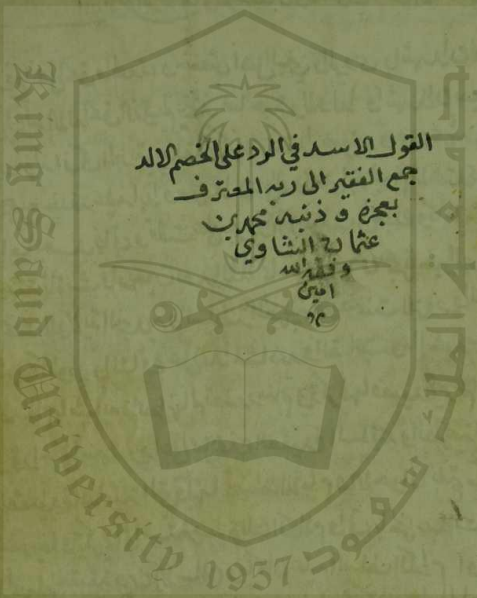 القول الاسد في الرد على الخصم الالد
جمع الفقير الى ربه المعترف
بعجزه و ذنبه محمد بن
عثمان الشاوي
وفقه الله
امين
م
جامعة الملك سعود
King Saud University
1957